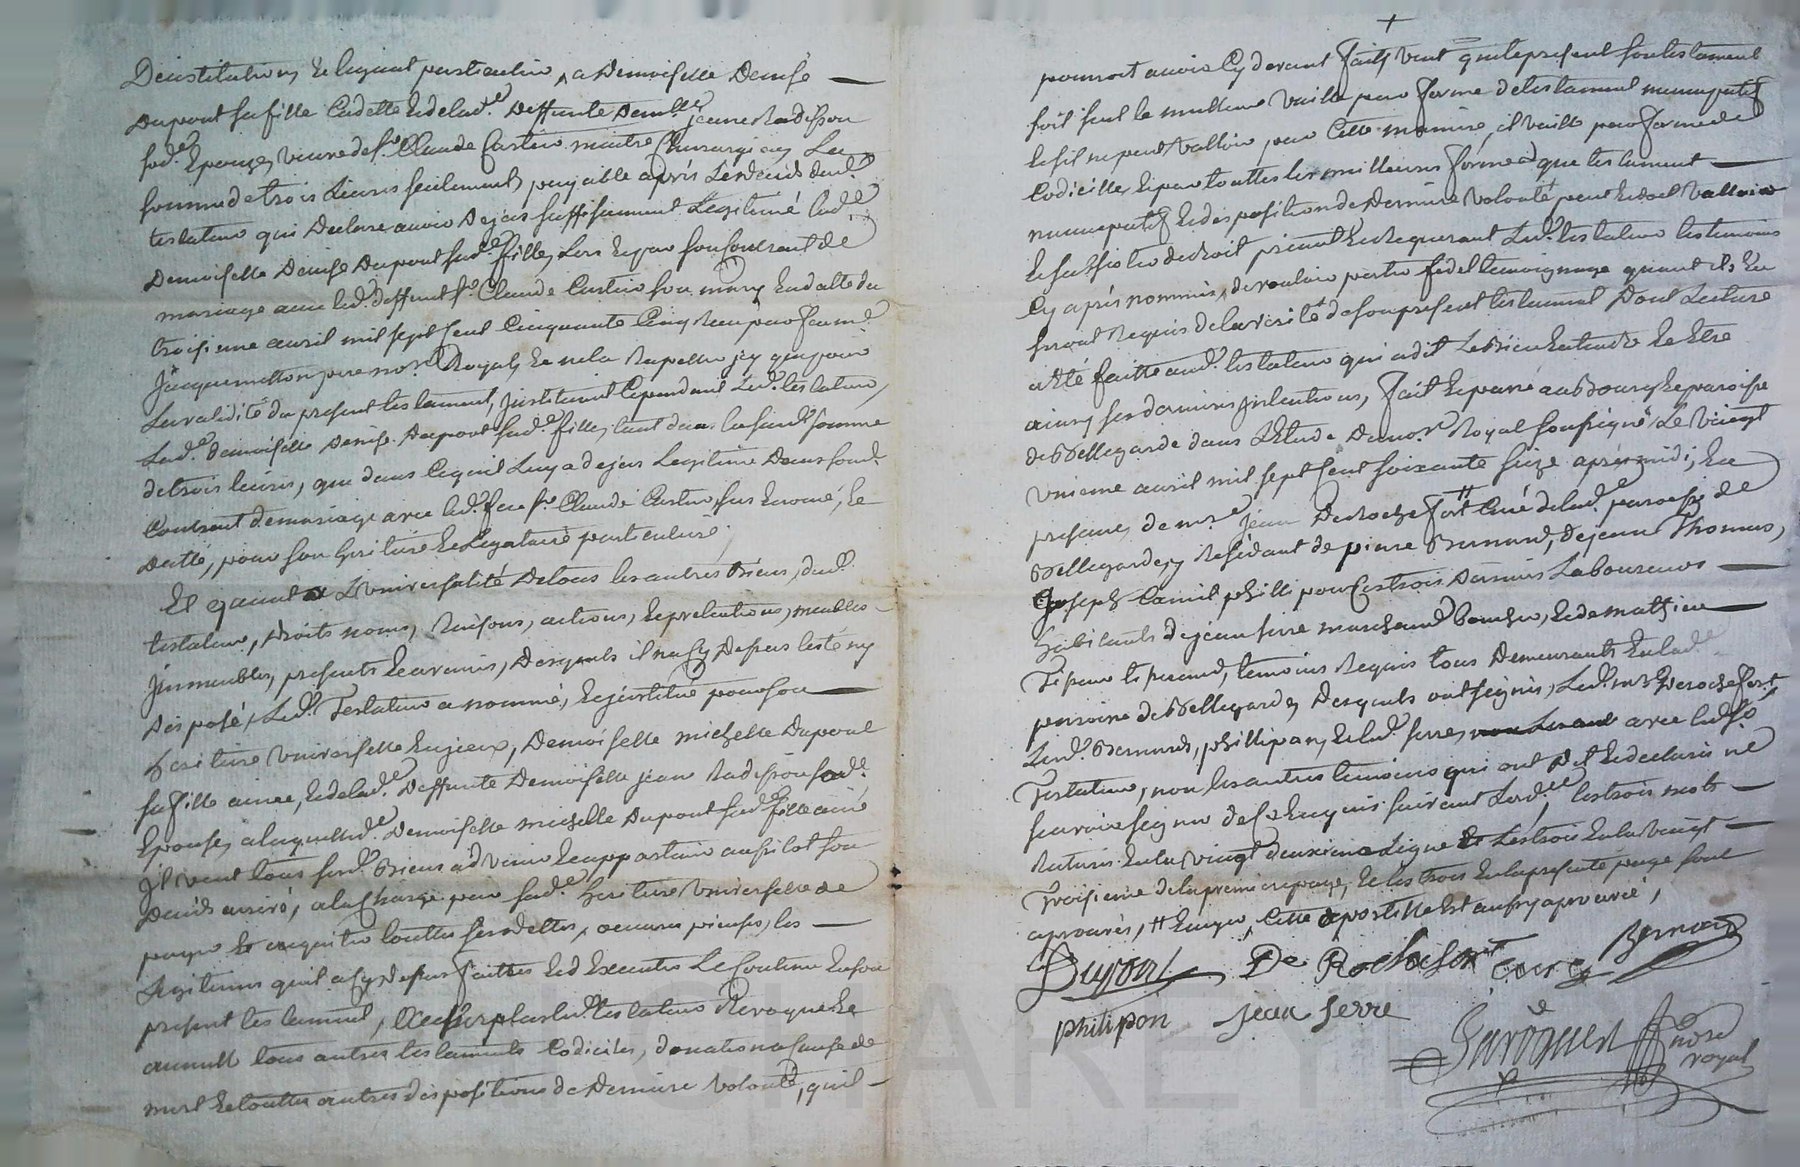 D'institution, & legant particulier, a Demoiselle Denise
Dupont sa fille Cadette & de lad.e Deffunte Dem.lle jeanne Radisson
sad.e Epouze, veuve de s.r Claude Castin maitre Chirurgien La
somme de trois Livres seulement, payable aprés Le deceds dud.t
testateur qui Declare avoir Dejea suffisament Legitimé lad.e
Demoiselle Denise Dupont sad.e fille, Lors & par son Contrant de
mariage avec led.t deffunt s.r Claude Castin son mary En datte du
troisieme avril mil sept Cent Cinquante Cinq Reçu par
Jacquemetton pere no.re Royal, & en la Rapeller jcy que pour
La validité du present testament, jnstituant Cependant Led.t testateur,
Lad.e demoiselle Denise Dupont sad.e fille, tant dans lasusd.e somme
de trois livres, que dans Ce quil Luy a dejea Legitimé Dans sond.t
Contrant de mariage avec led.t feu s.r Claude Castin sus Enoncé, &
datté, pour son heritiere & Legataire particuliere,
Et quant a L'universalité De tous les autres Biens, dud.t
testateur, Droits noms, Raisons, actions, & pretentions, meubles
jmmeubles, presents & avenirs, Desquels il na Cy Depus testé ny
Disposé, Led.t Testateur a nommé, & jnstitué pour son
heritiere Universelle Demoiselle michelle Dupont
sa fille ainée, & de lad.e Deffunte Demoiselle jeane Radisson sad.e
Epouse, a laquelled.e Demoiselle michelle Dupont sad.e fille ainé
jl veut tous sesd.ts Biens advenir & appartenir aussitot son
Deceds arrivé, a la Charge par sad.e heritiere Universelle de
payer & acquitter touttes ses dettes, oeuvres pieuses, les
Legitimes quil a Cy depus faittes & d'Executer Le Contenu En son
present testament, par led.t testateur Revoque &
annulle tous autres testaments Codiciles, donations a Cause de
mort & touttes autres dispositions de Derniere volonté, quil
pourroit avoir Cy devant faits veut que le present son testament
soit seul le meilleur vaille par forme de testament nuncupatif
& sil ne peut valloir par Cette maniere, il vaille par forme de
Codicille, & par touttes les meilleures formes que testament
nuncupatif & disposition de Derniere volonté peut & doit valloir
de droit priant & Requerant Led.t testateur les temoins
Cy aprés nommés, de vouloir porter fidel temoignage quant ils En
seront Requis de la verité de son present testament Dont Lecture
a Eté faitte aud.t testateur qui a dit Le Bien Entendre & Etre
ainsy ses dernieres jntentions, fait & passé au Bourg & paroisse
de Bellegarde dans L'Etude Du no.re Royal soussigné Le vaingt
unieme avril mil sept Cent soixante seize aprés midi, En
presence de m.re jean Derochefort Curé de lad.e paroisse de
Bellegarde, Residant de pierre Bernard, de jean Thomas,
joseph Camit phillipon Ces trois Derniers Laboureurs
habitants de jean serre marchand boucher, & de mathieu
temoins Requis tous Demeurants En lad.e
paroisse de Bellegarde Desquels ont signés, Led.t m.re Derochefort
Led.t Bernard, phillipon, & led.t serre, avec led.t s.r
Testateur, non les autres temoins qui ont Dit & declaré ne
sçavoir signer de Ce Enquis suivant Lord.ce, les trois mots
Raturés En la vingt deuxieme Ligne & Les trois En la vingt
troisieme de la premiere page, & les trois En la presente page sont
aprouvés, Cette apostille Est aussy aprouvée,
Dupont De Rochefort Curé Bernard
philipon jean serre
no.re
royal
CHAREYR